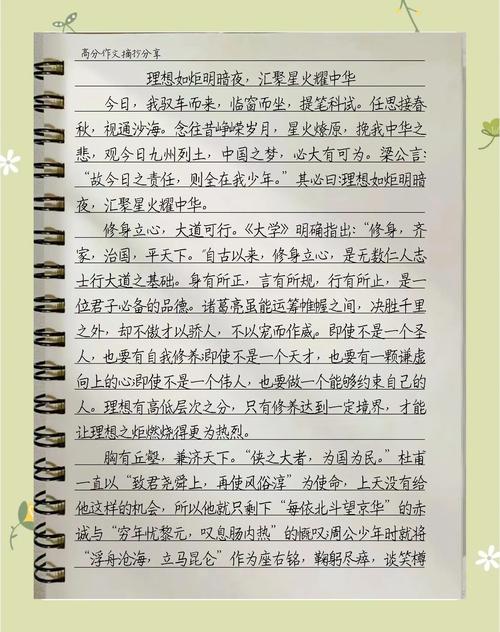 高分作文摘抄分享
理想如炬明暗夜，汇聚星火耀中华
今日，我驭车而来，临窗而坐，提笔科试。任思接春
秋，视通沙海。念往昔峥嵘岁月，星火燎原，挽我中华之
悲，观今日九州列土，中国之梦，必大有可为。梁公言：
“故今日之责任，则全在我少年。”其必曰：理想如炬明暗
夜，汇聚星火耀中华。
修身立心，大道可行。《大学》明确指出：“修身，齐
家，治国，平天下。”自古以来，修身立心，是无数仁人志
士行大道之基础。身有所正，言有所规，行有所止，是一
位君子必备的品德。诸葛亮虽能运筹帷幄之间，决胜千里
之外，却不傲才以骄人，不以宠而作威。即使不是一个圣
人，也要有自我修养；即使不是一个天才，也要有一颗谦虚
向上的心；即使不是一个伟人，也要做一个能够约束自己的
人。理想有高低层次之分，只有修养达到一定境界，才能
让理想之炬燃烧得更为热烈。
胸有丘壑，兼济天下。“侠之大者，为国为民。”杜甫
一直以“致君尧舜上，再使风俗淳”为使命，上天没有给
他这样的机会，所以他就只剩下“每依北斗望京华”的赤
诚与“穷年忧黎元，叹息肠内热”的慨叹；周公少年时就将
“浮舟沧海，立马昆仑”作为座右铭，鞠躬尽瘁，谈笑樽